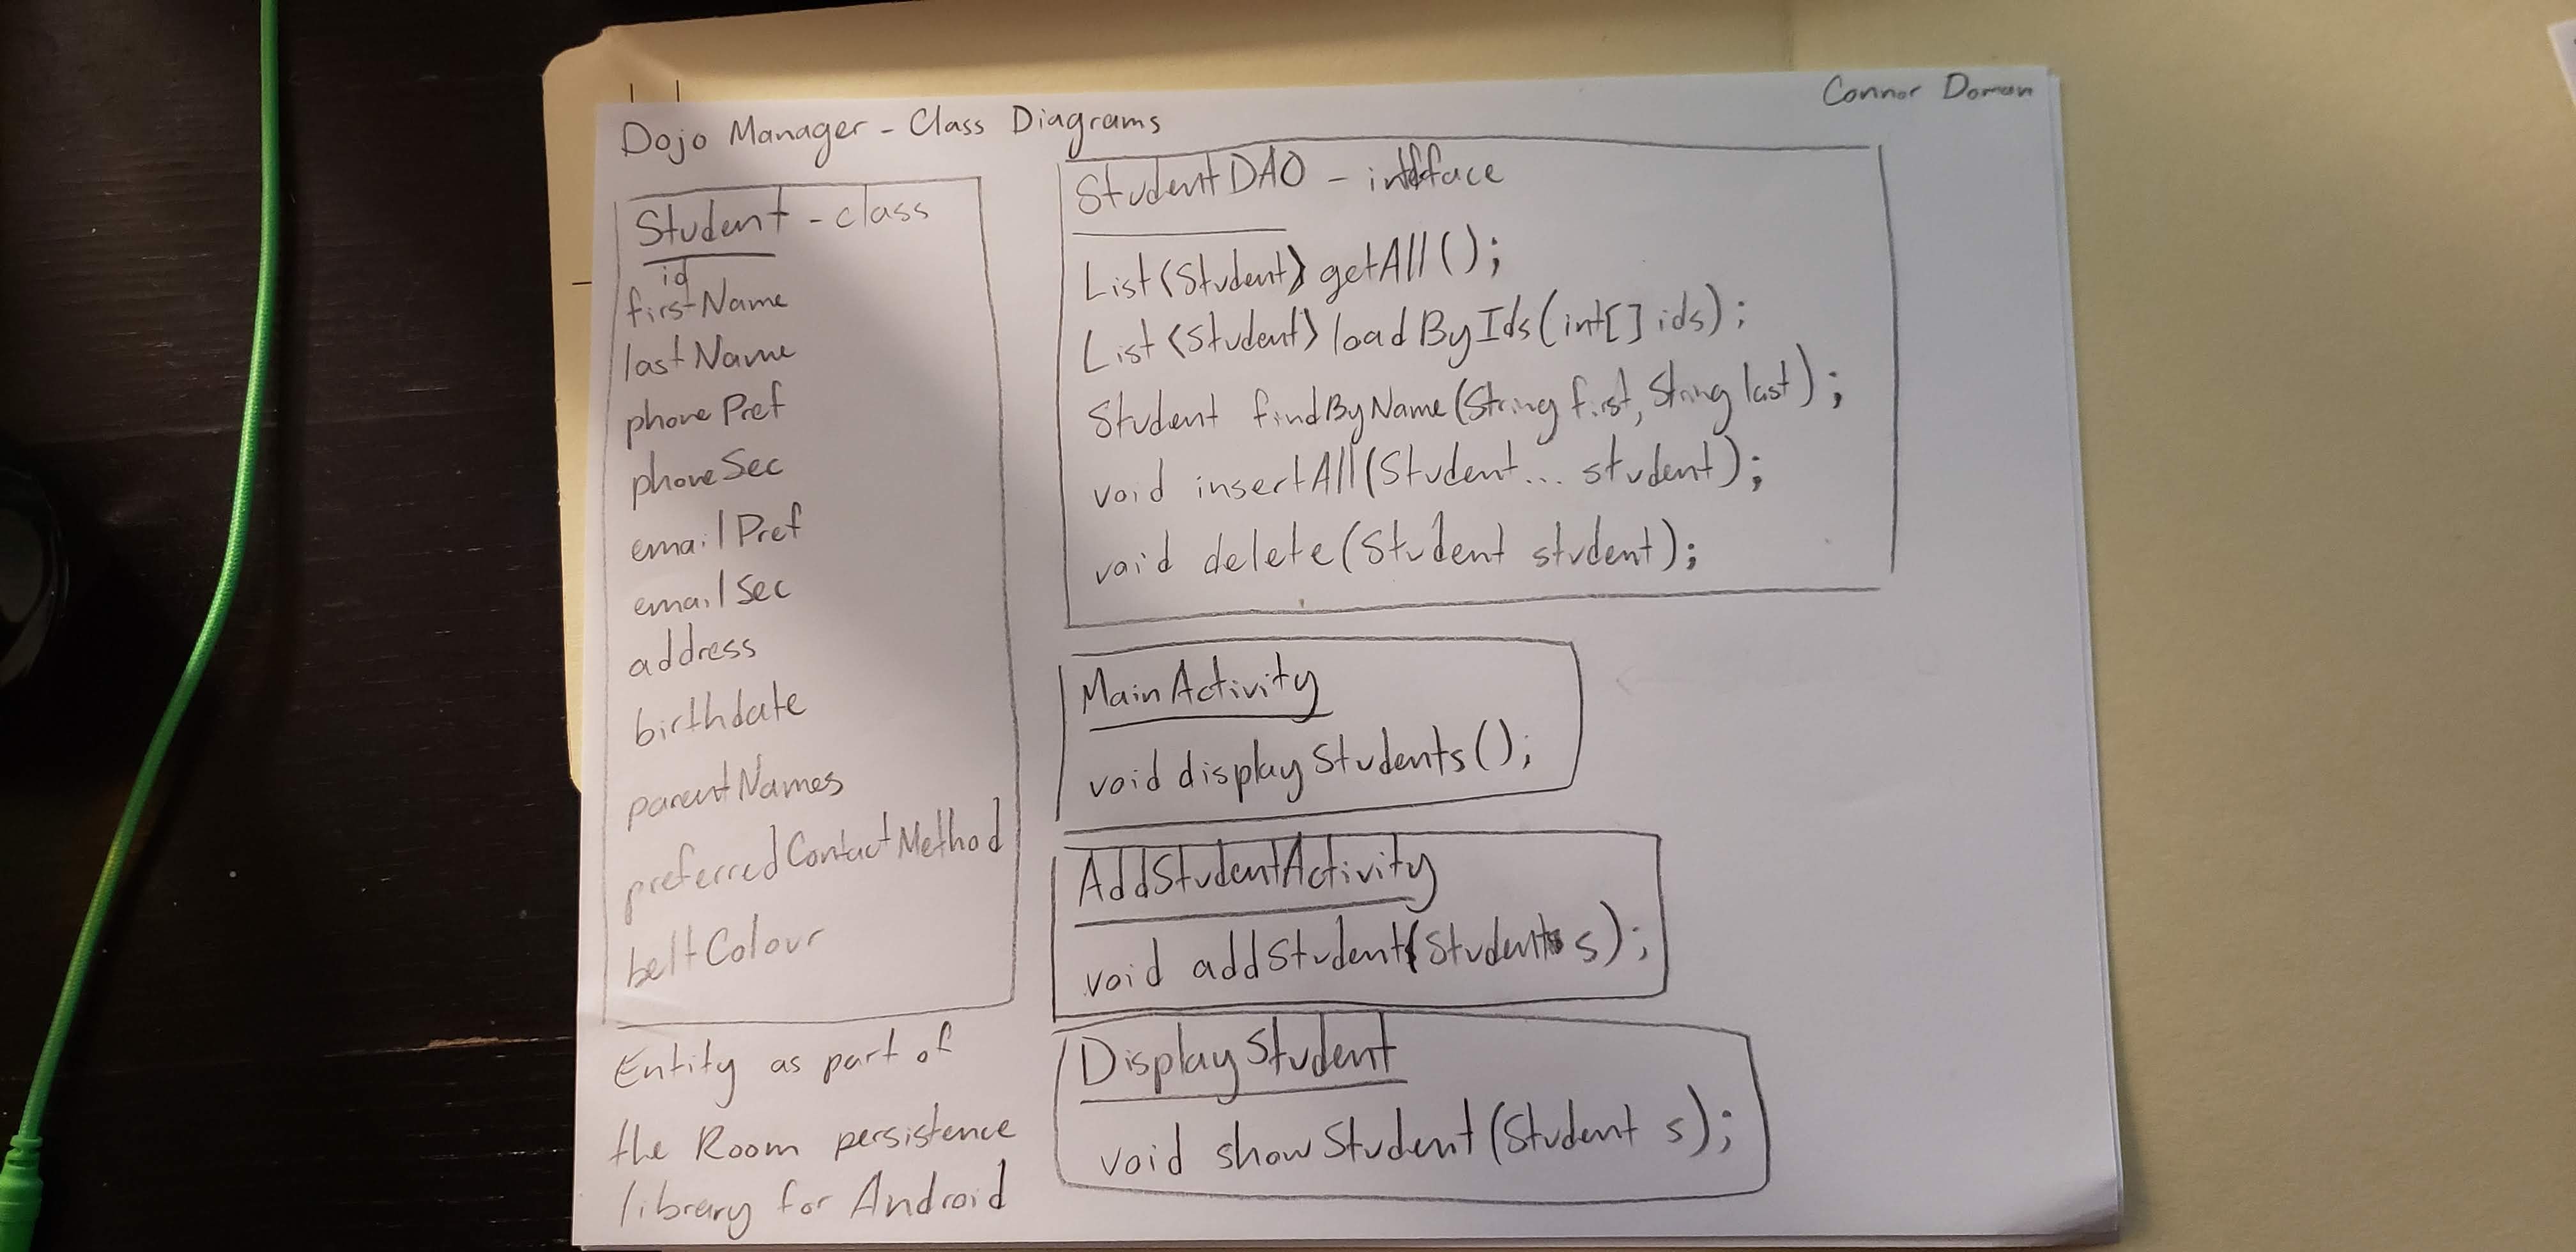 Connor Doman
Dojo Manager - Class Diagrams
Student - class
id
firstName
lastName
phonePref
phoneSec
emailPref
emailSec
address
birthdate
parentNames
preferredContactMethod
beltColour
Entity as part of
the Room persistence
library for Android
StudentDAO - interface
List<Student> getAll();
List<Student> loadByIds(int[] ids);
Student findByName(String first, String last);
void insertAll(Student... student);
void delete(Student student);
MainActivity
void displayStudents();
AddStudentActivity
void addStudent(Student s);
DisplayStudent
void showStudent(Student s);